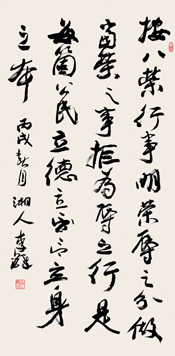 按八榮行事明榮辱之分做
當榮之事拒為辱之行是
每箇公民立德立言立身
之本 丙戌春月 湘人李